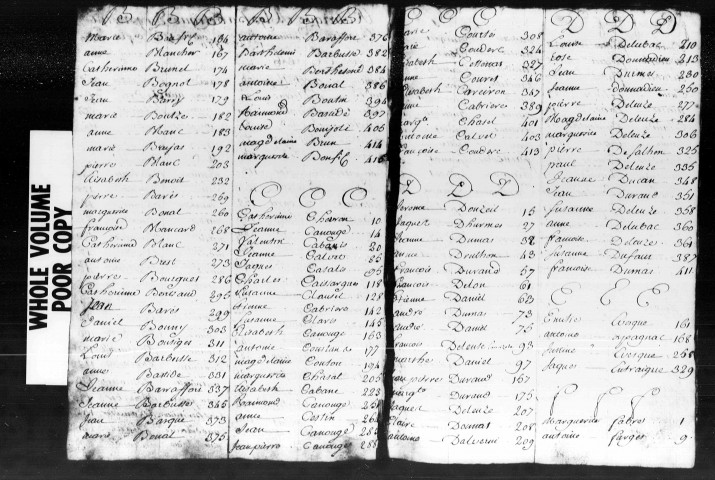 WHOLE VOLUME
POOR COPY
B B B
marie 184
anne Blancher 167
Catherinne Brunel 174
Jean Bognol 178
Jean 179
marie Boutze 182
anne Blanc 183
marie 192
pierre Blanc 203
Elisabeth Benoit 232
pierre Barés 259
margueritte Bonal 260
françois Blancard 268
Catherinne Blanc 271
antoine Brest 273
pierre Bourgues 286
Catherinne Bertrand 295
Jean Barés 299
Daniel Bonny 303
marie Bousiges 311
Louis Barbusse 312
anne Bastide 331
Jeanne Baraffort 337
Jeanne Barbusse 345
Jean Barque 373
marie Bonal 375
B B B
antoine Baraffort 376
Barthelemi Barbusse 382
marie Berthesene 384
antoine Bonal 386
Louis Boutin 394
Raimond Bastide 397
Louise Bonijoli 405
magdelaine Brun 414
margueritte 416
C C C
Catherinne Chairon 10
Jeanne Canouge 14
Valentin Cabanis 20
Jeanne Calvet 25
Jaques Casals 95
Charles Cassargues 118
Susanne Clausel 128
Etienne Cabriere 142
Susanne Claris 145
Elisabeth Canouge 163
antoine Coustans 177
magdelaine Couton 194
margueritte Chasal 205
Elisabeth Cabane 223
Raimond Canouge
anne Cestin
Jean Canouge
Jean pierre Canouge 285
C C C
marie Courtes 308
Couderc 324
Elisabeth 327
anne Couret 346
Elisabeth Carreiron 347
Cabriere 389
Chasel 401
antoine Calvet 403
françoise Couderc 413
D D D
Jerome Douzeil 15
Jaques Dhurmes 27
Jeanne Dumas 38
anne Doulhon 43
françois Durand 57
françois Delon 61
Etienne Daniel 69
andré Dumas 73
andré Daniel 75
françois Deleuze 93
marthe Daniel 97
Jean pierre Durand 167
Durand 175
Jaques Deleuze 207
Claire Doumas 208
antoine Dalverni 209
D D D
Louise Delubac 210
Rose Donnadieu 213
Jean Durmes 230
Jeanne Donnadieu 250
pierre Deleuze 277
Magdelaine Deleuze 284
margueritte Deleuze 306
pierre Desalhon 325
paul Deleuze 335
Jeanne Ducan 348
Jean Durand 351
Susanne Deleuze 358
anne Delubac 360
françoise Deleuze 361
Susanne Dufaux 387
françoise Dumas 411
E E E
161
antoine 168
258
Jaques Entraigue 329
F F F
Margueritte Fabres 1
antoine Farges 9